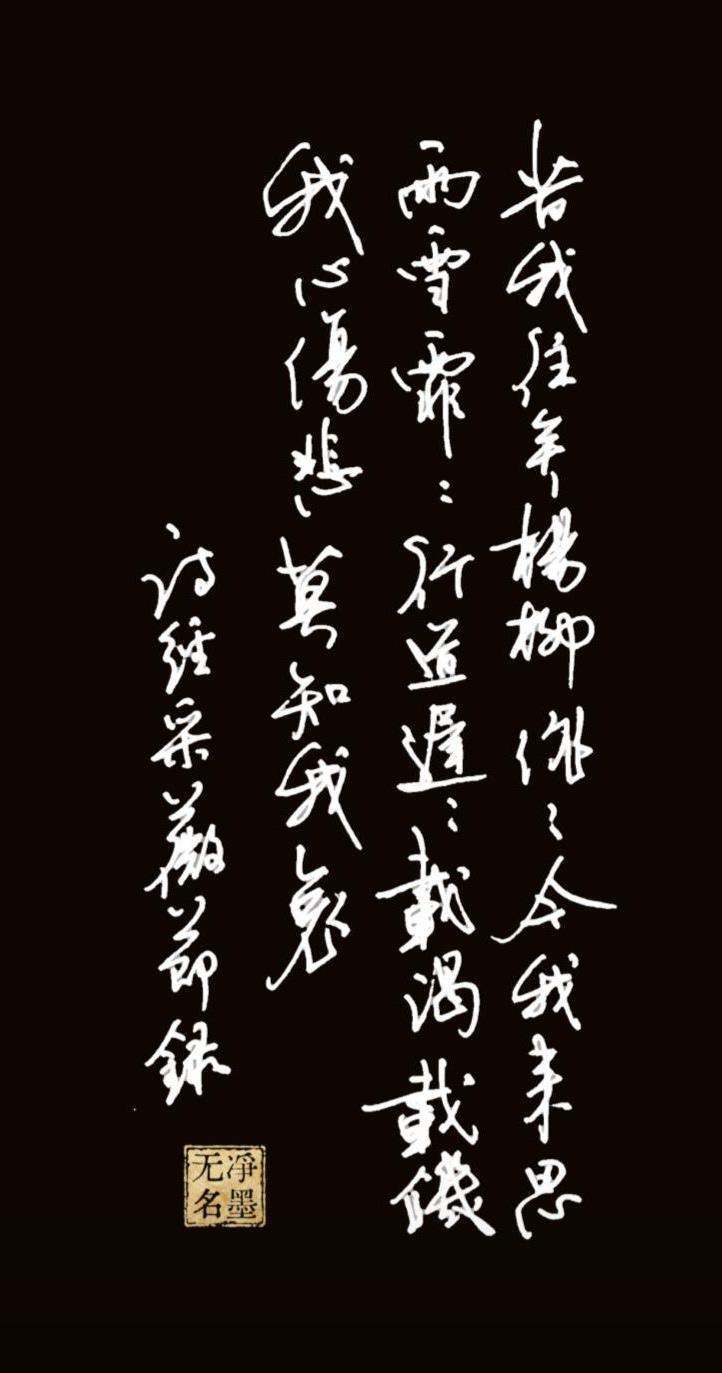 昔我往矣楊柳依〻今我来思
雨雪霏〻行道遲〻載渴載饑
我心傷悲莫知我哀
诗経采薇節録
净墨
无名